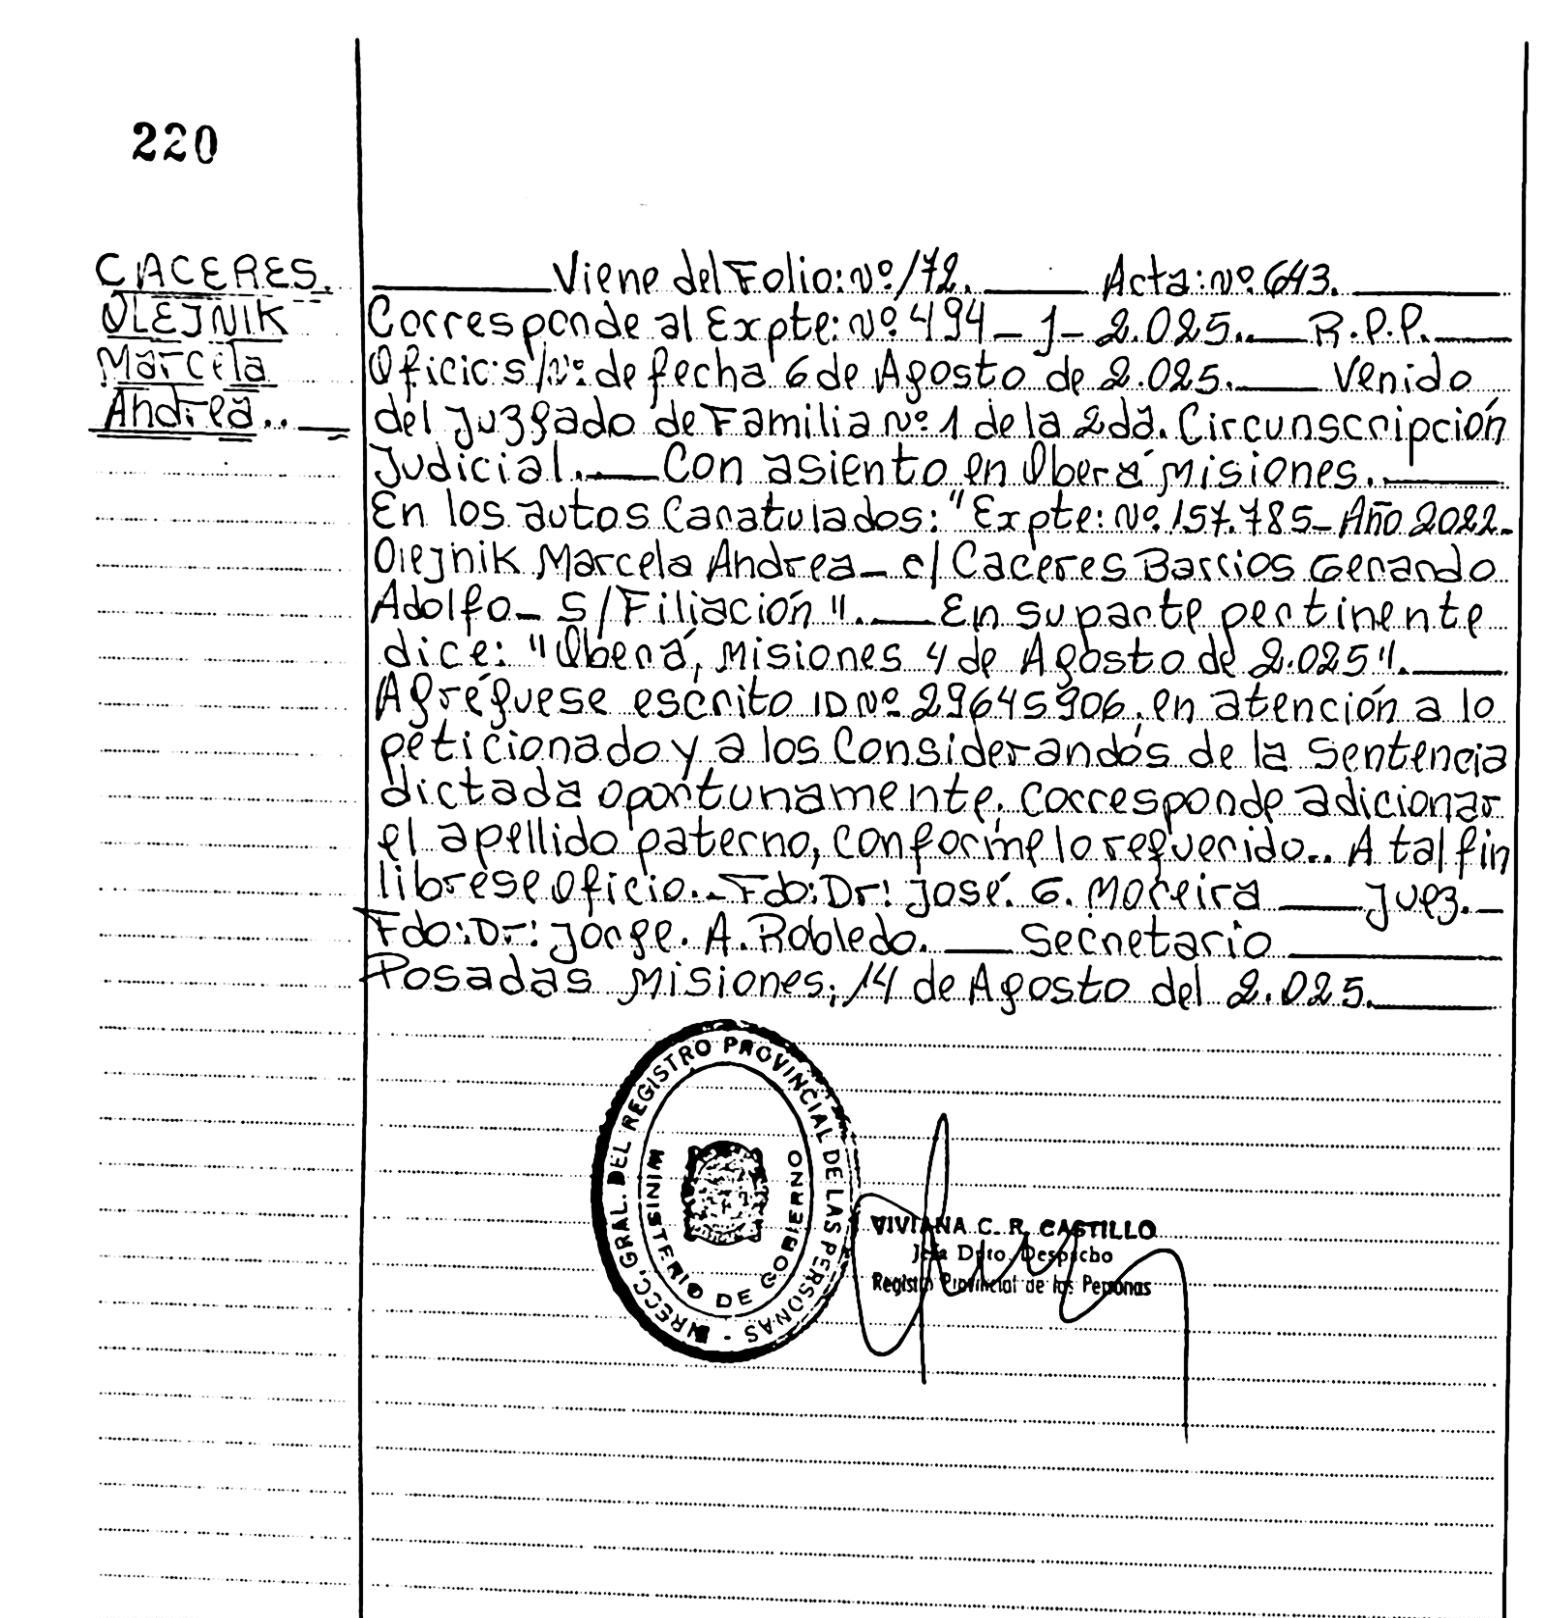 220
CACERES.
OLEJNIK
Marcela
Andrea..
Viene del Folio: Nº 172. Acta: Nº 643.
Corresponde al Expte: Nº 494 - J - 2.025. R.P.P.
Oficio: s/Nº: de fecha 6 de Agosto de 2.025. Venido
del Juzgado de Familia Nº 1 de la 2da. Circunscripción
Judicial. Con asiento en Oberá Misiones.
En los autos Caratulados: "Expte: Nº 157.785 - Año 2022-
Olejnik Marcela Andrea - c/ Caceres Barrios Gerardo
Adolfo - S/Filiación". En su parte pertinente
dice: "Oberá, Misiones 4 de Agosto de 2.025".
Agréguese escrito ID Nº 29645906, en atención a lo
peticionado y a los Considerandos de la Sentencia
dictada oportunamente, corresponde adicionar
el apellido paterno, conforme lo requerido.. A tal fin
librese oficio.. Fdo: Dr: José. G. Moreira Juez.
Fdo: Dr: Jorge. A. Robledo. Secretario
Posadas Misiones, 14 de Agosto del 2.025.
DIRECC. GRAL. DEL REGISTRO PROVINCIAL DE LAS PERSONAS -
MINISTERIO DE GOBIERNO
VIVIANA C. R. CASTILLO
Jefa Dpto. Despacho
Registro Provincial de las Personas